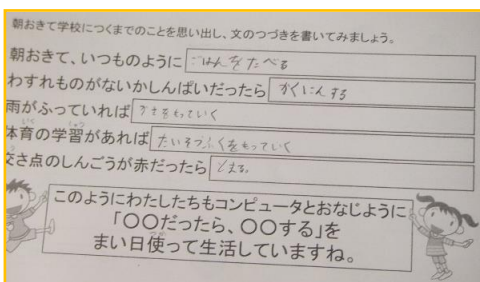 朝おきて学校につくまでのことを思い出し、文のつづきを書いてみましょう。
朝おきて、いつものように ごはんをたべる
わすれものがないかしんぱいだったら かくにんする
雨がふっていれば かさをもっていく
体育の学習があれば たいそうふくをもっていく
交さ点のしんごうが赤だったら とまる。
このようにわたしたちもコンピュータとおなじように
「〇〇だったら、〇〇する」を
まい日使って生活していますね。